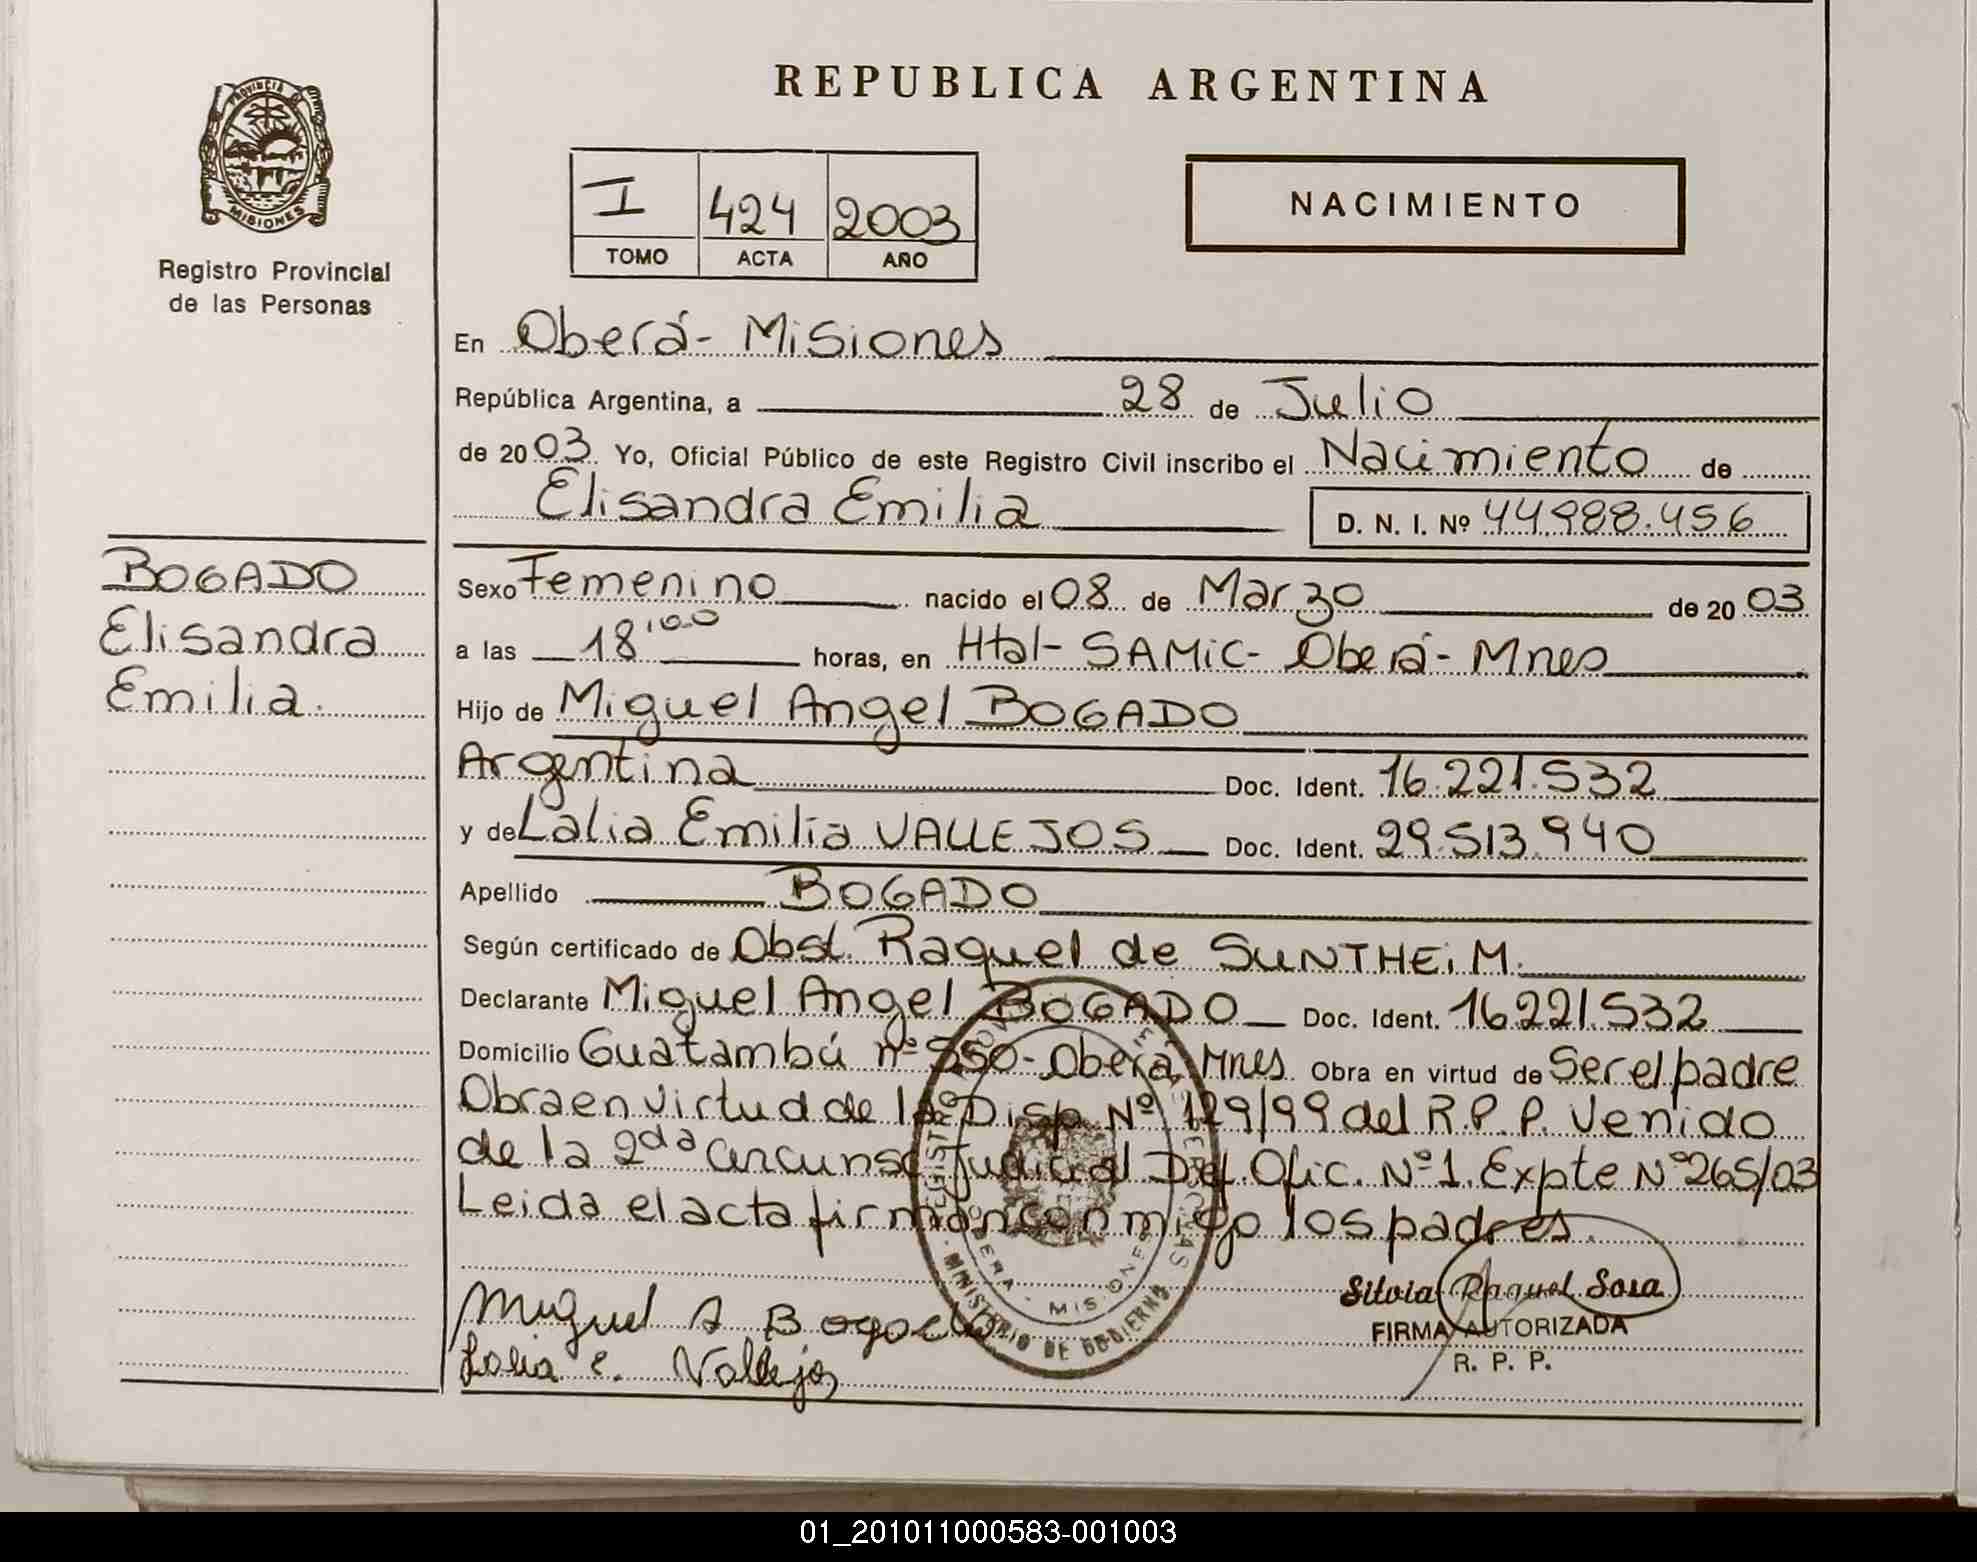 REPUBLICA ARGENTINA
PROVINCIA DE MISIONES
Registro Provincial
de las Personas
I 424 2003
TOMO ACTA AÑO
NACIMIENTO
En Oberá - Misiones
República Argentina, a 28 de Julio
de 2003 Yo, Oficial Público de este Registro Civil inscribo el Nacimiento de
Elisandra Emilia D. N. I. Nº 44.988.456
BOGADO
Elisandra
Emilia.
Sexo Femenino nacido el 08 de Marzo de 2003
a las 18'00 horas, en Htal - SAMiC - Oberá - Mnes
Hijo de Miguel Angel BOGADO
Argentina Doc. Ident. 16.221.532
y de Lalia Emilia VALLEJOS Doc. Ident. 29.513.940
Apellido BOGADO
Según certificado de Obst. Raquel de SUNTHEiM.
Declarante Miguel Angel BOGADO Doc. Ident. 16.221.532
Domicilio Guatambú nº 550 - Oberá, Mnes Obra en virtud de Ser el padre
Obra en virtud de la Disp. Nº 129/99 del R.P.P. Venido
de la 2da Circunsc Judicial Def. Ofic. Nº 1. Expte Nº 265/03
Leida el acta firman conmigo los padres.
Miguel A Bogado
Lalia E. Vallejos
MINISTERIO DE GOBIERNO
OBERA - MISIONES
Silvia Raquel Sosa
FIRMA AUTORIZADA
R. P. P.
01_201011000583-001003